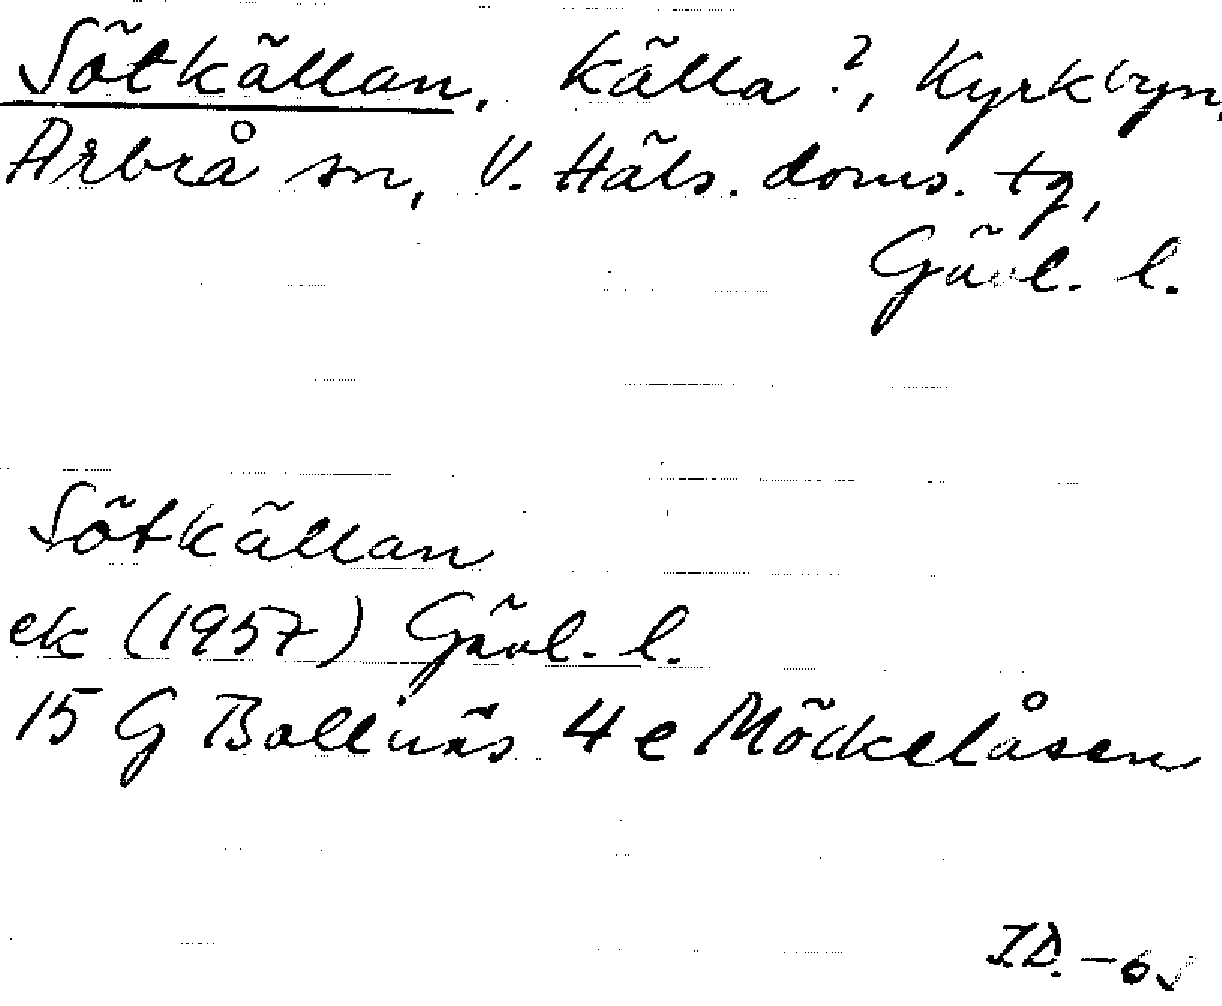 Sötkällan, källa?, Kyrkbyn,
Arbrå sn, V. Häls. doms. tg,
Gävl. l.
Sötkällan
ek (1957) Gävl. l.
15 G Bollnäs 4 e Möckelåsen
I.D.